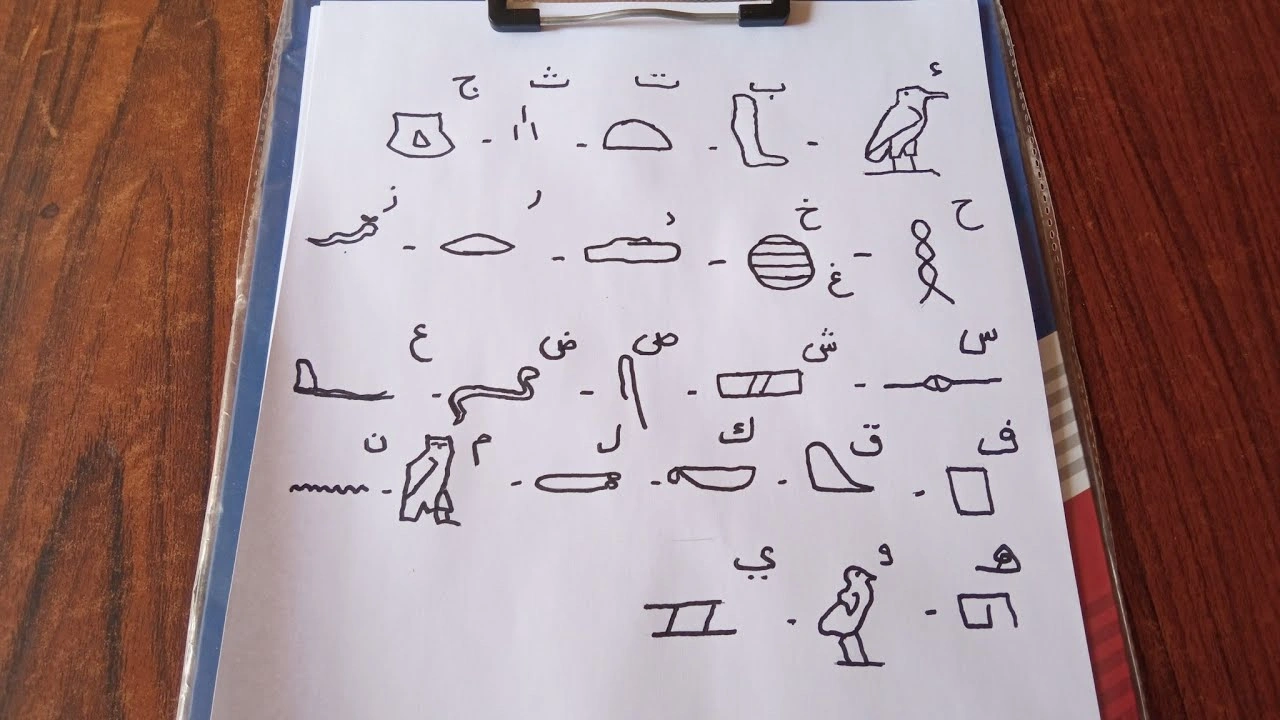 ء ب ت ث ج
ح خ غ د ر ز
س ش ص ض ع
ف ق ك ل م ن
هـ و ي